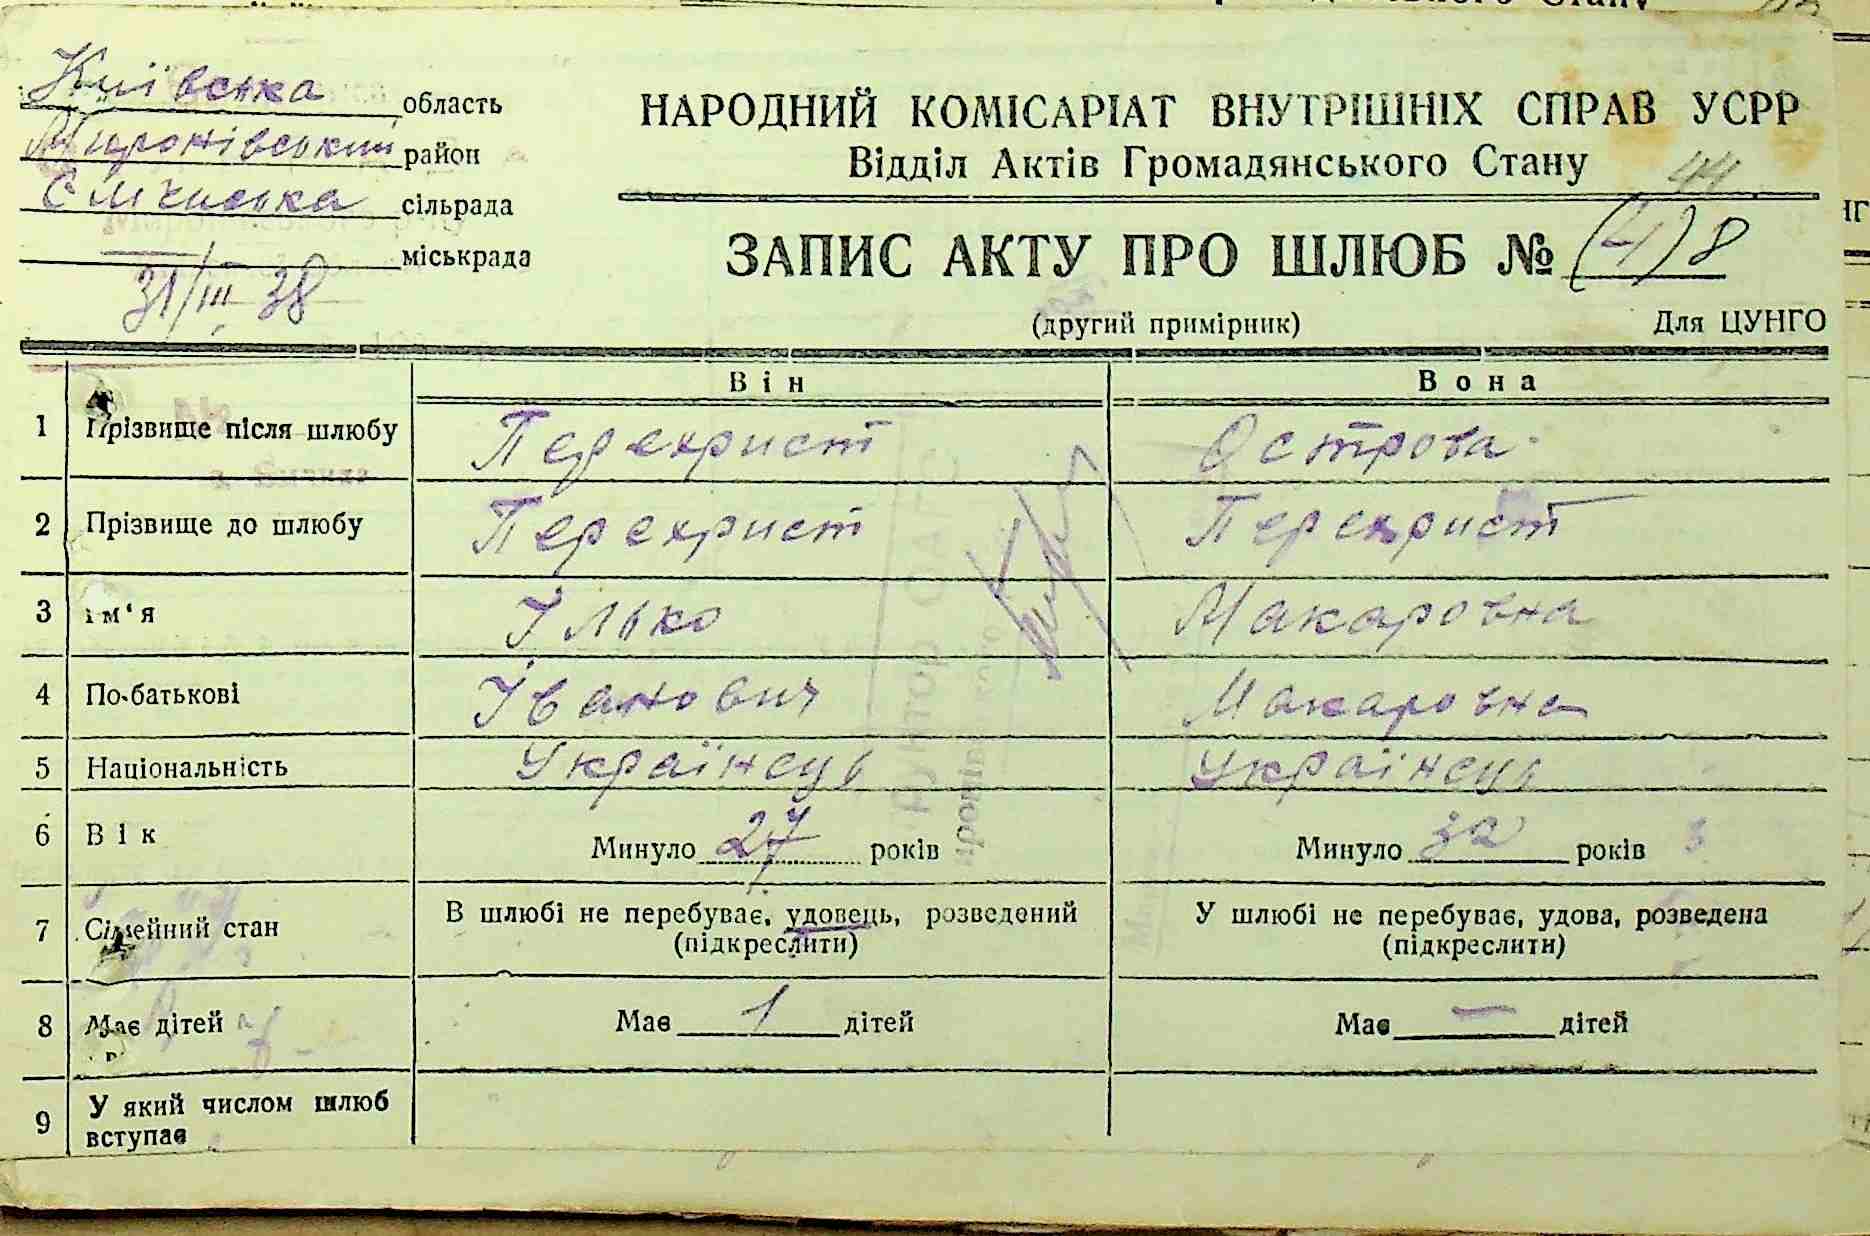 Київська область
Миронівський район
Ємчиська сільрада
міськрада
31/III 38
НАРОДНИЙ КОМІСАРІАТ ВНУТРІШНІХ СПРАВ УСРР
Відділ Актів Громадянського Стану
44
ЗАПИС АКТУ ПРО ШЛЮБ № (4) 8
(другий примірник) Для ЦУНГО
Він Вона
1 Прізвище після шлюбу Перехрист Острова
2 Прізвище до шлюбу Перехрист Перехрист
3 Ім'я Ілько Макаровна
4 По-батькові Іванович Макаровна
5 Національність Українець Українець
6 Вік Минуло 27 років Минуло 32 років
7 Сімейний стан В шлюбі не перебуває, удовець, розведений (підкреслити) У шлюбі не перебуває, удова, розведена (підкреслити)
8 Має дітей Має 1 дітей Має — дітей
9 У який числом шлюб вступає